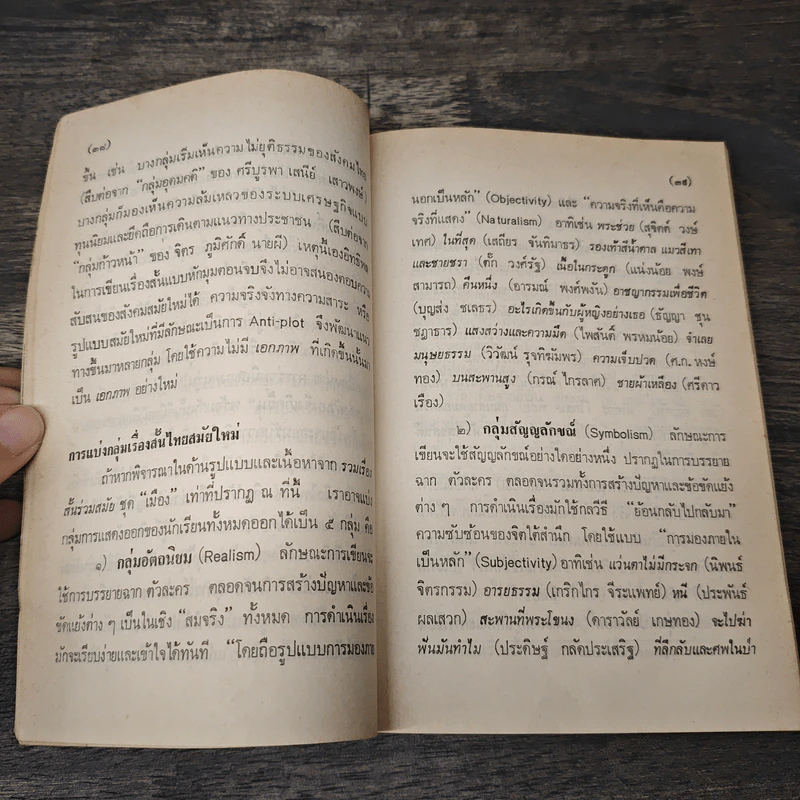 (๓๘)
ขึ้น เช่น บางกลุ่มเริ่มเห็นความไม่ยุติธรรมของสังคมไทย
(สืบต่อจาก "กลุ่มอุดมคติ" ของ ศรีบูรพา เสนีย์ เสาวพงษ์)
บางกลุ่มก็มองเห็นความล้มเหลวของระบบเศรษฐกิจแบบ
ทุนนิยมและยึดถือการเดินตามแนวทางประชาชน (สืบต่อจาก
"กลุ่มก้าวหน้า" ของ จิตร ภูมิศักดิ์ นายผี) เหตุนี้เองอิทธิพล
ในการเขียนเรื่องสั้นแบบหักมุมตอนจบจึงไม่อาจสนองตอบความ
สับสนของสังคมสมัยใหม่ได้ ความจริงจังทางความสาระ หรือ
รูปแบบสมัยใหม่ที่มีลักษณะเป็นการ Anti-plot จึงพัฒนาแนว
ทางขึ้นมาหลายกลุ่ม โดยใช้ความไม่มี เอกภาพ ที่เกิดขึ้นนั้นมา
เป็น เอกภาพ อย่างใหม่
การแบ่งกลุ่มเรื่องสั้นไทยสมัยใหม่
ถ้าหากพิจารณาในด้านรูปแบบและเนื้อหาจาก รวมเรื่อง
สั้นร่วมสมัย ชุด "เมือง" เท่าที่ปรากฏ ณ ที่นี้ เราอาจแบ่ง
กลุ่มการแสดงออกของนักเขียนทั้งหมดออกได้เป็น ๕ กลุ่ม คือ
๑) กลุ่มอัตถนิยม (Realism) ลักษณะการเขียนจะ
ใช้การบรรยายฉาก ตัวละคร ตลอดจนการสร้างปัญหาและข้อ
ขัดแย้งต่าง ๆ เป็นในเชิง "สมจริง" ทั้งหมด การดำเนินเรื่อง
มักจะเรียบง่ายและเข้าใจได้ทันที "โดยถือรูปแบบการมองภาย
(๓๙)
นอกเป็นหลัก" (Objectivity) และ "ความจริงที่เห็นคือความ
จริงที่แสดง" (Naturalism) อาทิเช่น พระช่วย (สุจิตต์ วงษ์
เทศ) ในที่สุด (เสถียร จันทิมาธร) รองเท้าสีน้ำตาล แมวสีเทา
และชายชรา (ตั๊ก วงศ์รัฐ) เนื้อในกระดูก (แน่งน้อย พงษ์
สามารถ) คืนหนึ่ง (อารมณ์ พงศ์พงัน) อาชญากรรมเพื่อชีวิต
(บุญส่ง ชเลธร) อะไรเกิดขึ้นกับผู้หญิงอย่างเธอ (ธัญญา ชุน
ชฎาธาร) แสงสว่างและความมืด (ไพสันติ์ พรหมน้อย) จำเลย
มนุษยธรรม (วิวัฒน์ รุจทิฆัมพร) ความเจ็บปวด (ศ.ก. หงษ์
ทอง) บนสะพานสูง (กรณ์ ไกรลาศ) ชายผ้าเหลือง (ศรีดาว
เรือง)
๒) กลุ่มสัญญลักษณ์ (Symbolism) ลักษณะการ
เขียนจะใช้สัญญลักษณ์อย่างใดอย่างหนึ่ง ปรากฏในการบรรยาย
ฉาก ตัวละคร ตลอดจนรวมทั้งการสร้างปัญหาและข้อขัดแย้ง
ต่าง ๆ การดำเนินเรื่องมักใช้กลวิธี "ย้อนกลับไปกลับมา"
ความซับซ้อนของจิตใต้สำนึก โดยใช้แบบ "การมองภายใน
เป็นหลัก" (Subjectivity) อาทิเช่น แว่นตาไม่มีกระจก (นิพนธ์
จิตรกรรม) อารยธรรม (เกริกไกร จีระแพทย์) หนี (ประพันธ์
ผลเสวก) สะพานที่พระโขนง (ดาราวัลย์ เกษทอง) จะไปฆ่า
ฟันมันทำไม (ประดิษฐ์ กลัดประเสริฐ) ที่ลึกลับและศพในบ้ำ